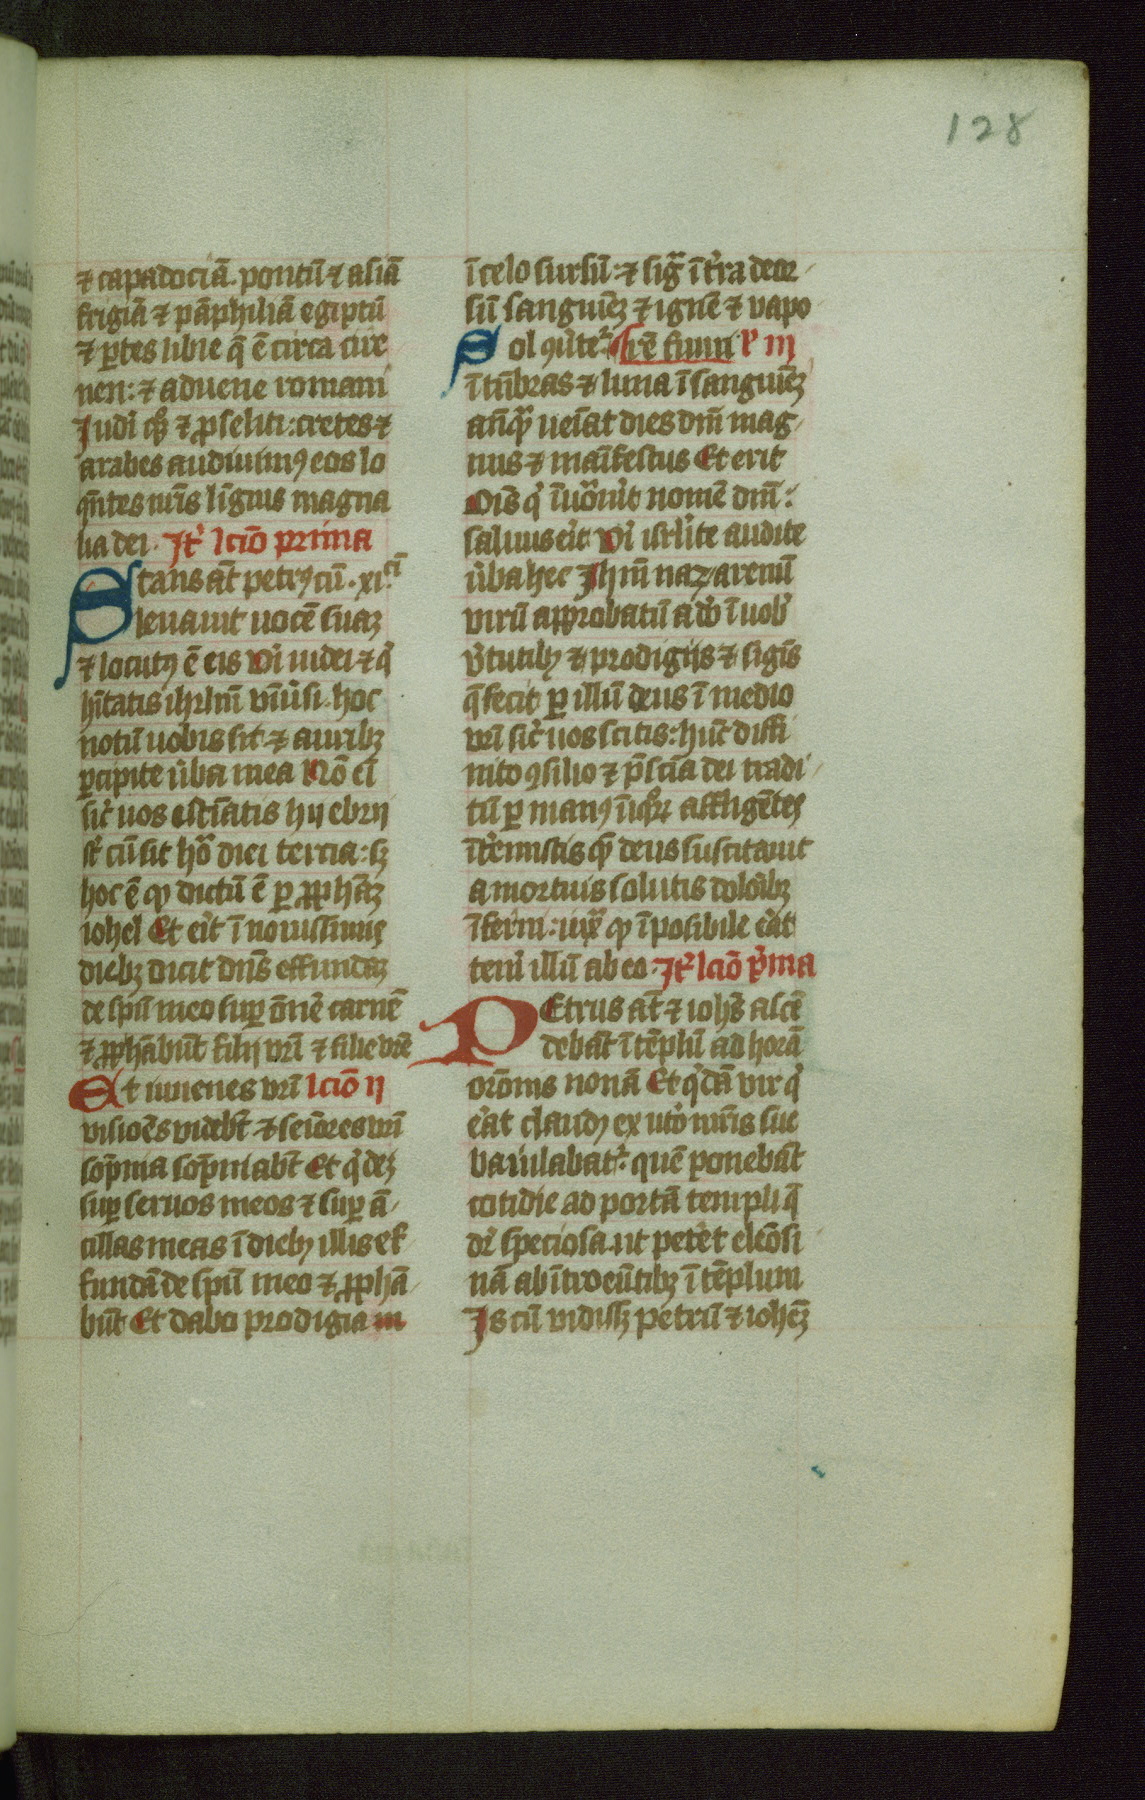 128
⁊ capadociā. pontū ⁊ asiā
frigiā ⁊ pāphiliā egiptū
⁊ ꝑtes libie q̄ ē circa cire
nen: ⁊ aduene romani
Iudi qꝫ ⁊ ꝓseliti: cretes ⁊
arabes audiuimꝯ eos lo
qn̄tes nr̄is līguis magna
lia dei. Itͥ lcio͞ prima
Stans at̄ petrꝯ cū. xi.cī
leuauit uocē suaꝫ
⁊ locutꝯ ē eis Vi iudei ⁊ qͥ
hītatis ihrlm̄ vniūsi. hoc
notū uobis sit ⁊ auribꝫ
ꝑcipite ūba mea Nō eī
sic̄ uos estīatis hij ebrij
st̄ cū sit hōͣ diei tercia: sꝫ
hoc ē qꝙ dictū ē ꝑ ꝓphāꝫ
iohel Et eͥit ī nouissimis
diebꝫ dicit dn̄s effundaꝫ
de spū meo suꝑ om̄nē carnē
⁊ ꝓphābūt filij vr̄i ⁊ filie vr̄e
Et iuuenes vr̄i lcio͞ ij
visiōes videbt̄ ⁊ seīores vr̄i
sop̄nia sop̄niabt̄ Et qͥdeꝫ
suꝑ seruos meos ⁊ suꝑ ā
cillas meas ī diebꝫ illis ef
fundā de spū meo ⁊ ꝓphā
būt Et dabo prodigia in
ī celo sursū: ⁊ sigͣ ī tr̄ra deor
sū sanguīeꝫ ⁊ ignē ⁊ vapo
Sol ꝯūtet͛ rē fumi ꝶ iij
ī tn̄bras ⁊ luna ī sanguīeꝫ
an̄qͣ ueīat dies dn̄i mag
nus ⁊ maīfestus Et erit
Oīs qͥ īuōͣūit nomē dn̄i:
saluus eͥit Vi isrl̄ite audite
ūba hec Ihm̄ nazarenū
virū approbatū a dō ī uobͥ
v̄tutibꝫ ⁊ prodigijs ⁊ sigīs
q̄ fecit ꝑ illū deus ī medio
vr̄i sic̄ uos scitis: hūc diffi
nito ꝯsilio ⁊ p̄scīa dei tradi
tū ꝑ manꝯ īiqͦꝝ affligētes
īt̄emistis qē deus suscitauit
a mortuis solutis dolōibꝫ
īferni: iuxͣ qꝙ īposibile eͣat
tenͥi illū ab eo. Itͥ lcio͞ pͥma
PEtrus at̄ ⁊ iohs̄ ascē
debāt ī tēplū ad horā
orōnis nonā Et qͥdā vir qͥ
eͣat claudꝯ ex utͦo mr̄is sue
baiulabatͬ. quē ponebāt
cotidie ad portā templi q̄
dr̄ speciosa. ut petēt eleōsi
nā ab ītroeūtibꝫ ī tēplum
Is cū vidissꝫ petrū ⁊ iohēꝫ